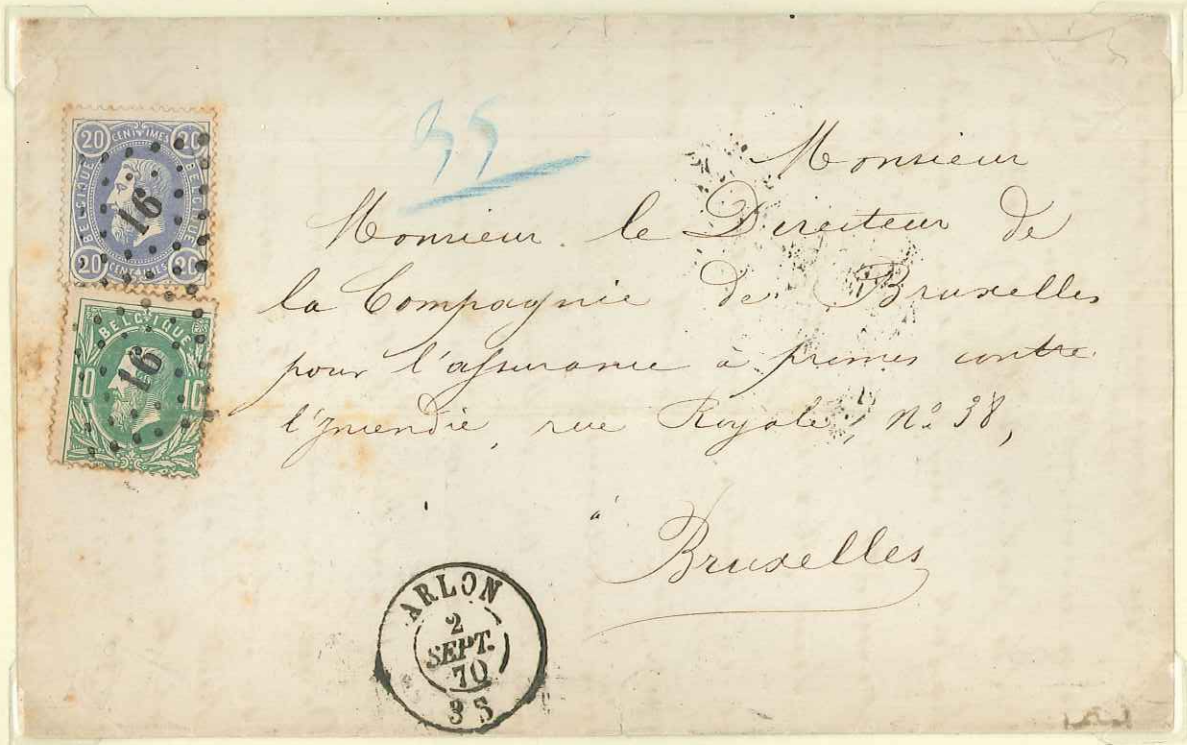 20 CENTIMES 20
BELGIQUE BELGIQUE
16
20 CENTIMES 20
BELGIQUE
10 16 10
Monsieur
Monsieur le Directeur de
la Compagnie de Bruxelles
pour l'assurance à primes contre
l'Incendie, rue Royale Nº 38,
à
Bruxelles
ARLON
2
SEPT.
70
3 S